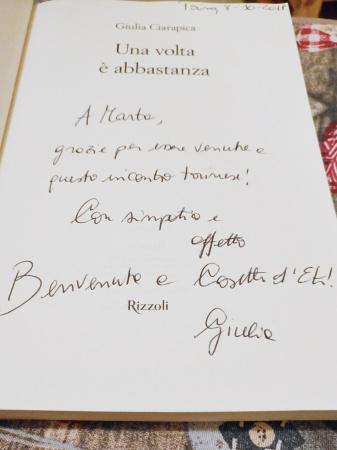 Torino 8-10-2018
Giulia Ciarapica
Una volta
è abbastanza
A Marta,
grazie per essere venuta a
questo incontro torinese!
Con simpatia e
affetto
Benvenuta a Casette d'Ete!
Rizzoli
Giulia